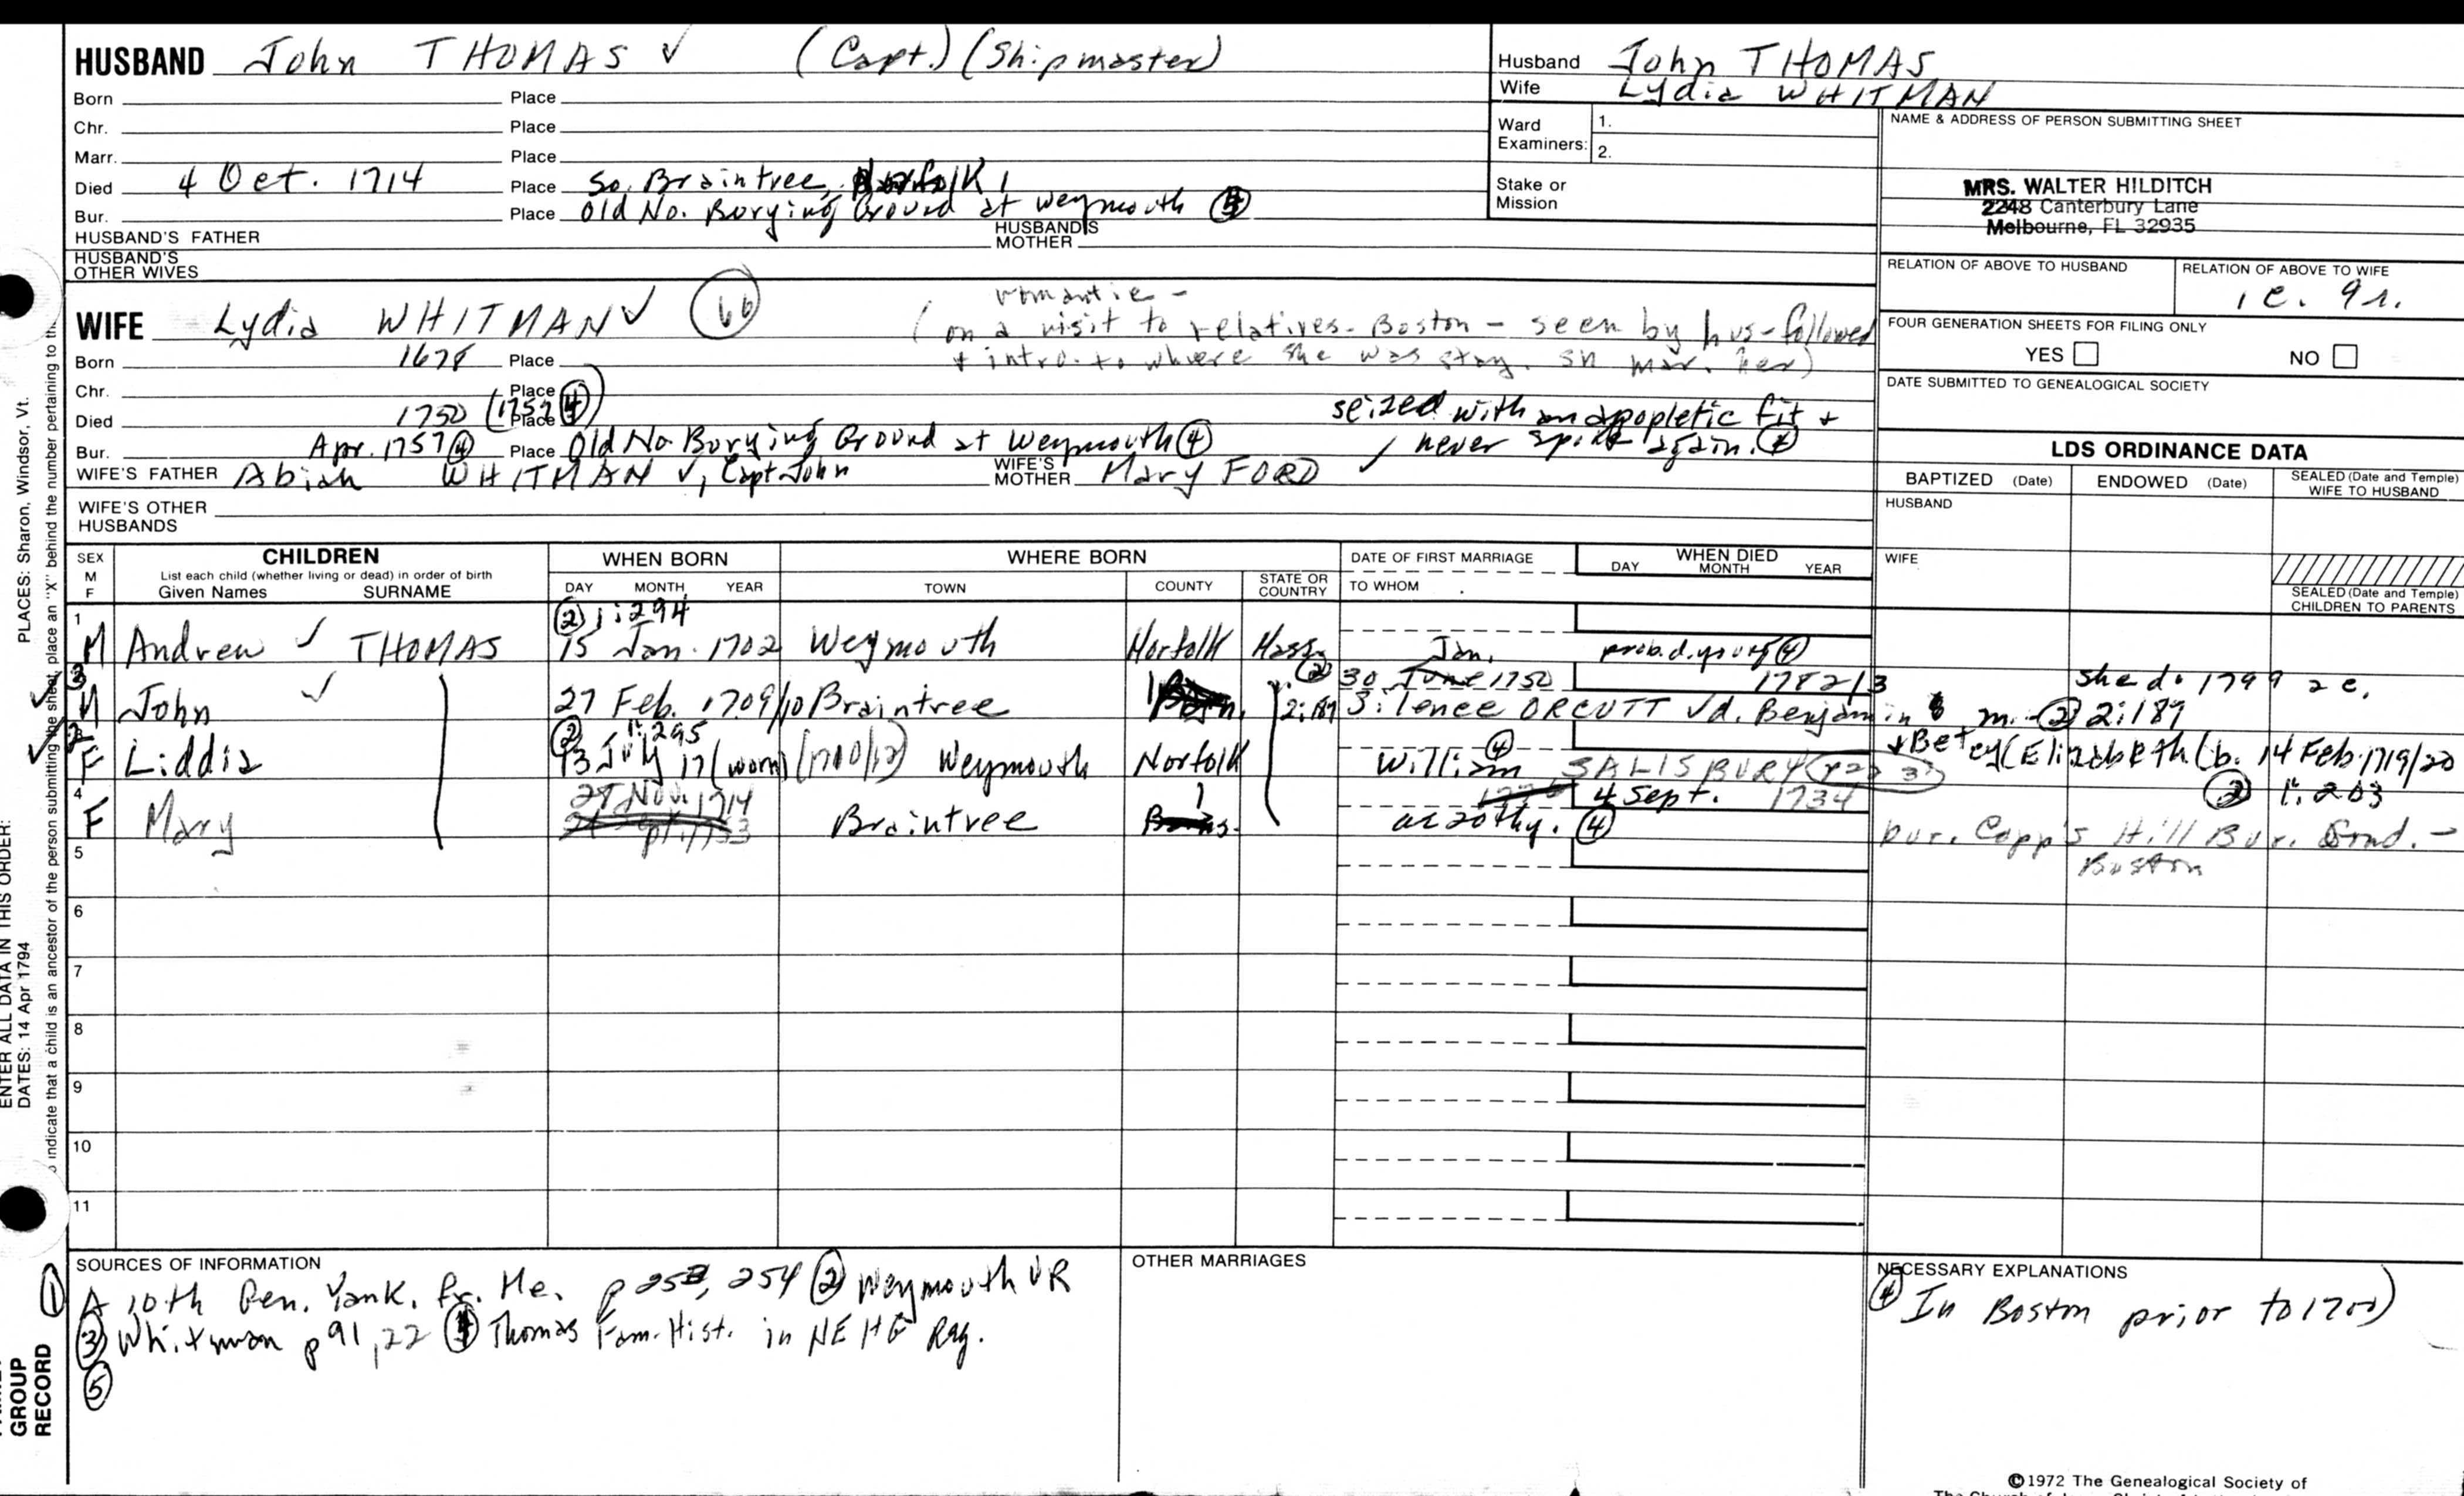 HUSBAND John THOMAS ✓ (Capt.) (Shipmaster)
Born Place
Chr. Place
Marr. Place
Died 4 Oct. 1714 Place So. Braintree, Norfolk 1
Bur. Place Old No. Burying Ground at Weymouth
HUSBAND'S FATHER HUSBAND'S MOTHER
HUSBAND'S OTHER WIVES
Husband John THOMAS
Wife Lydia WHITMAN
Ward Examiners: 1.
2.
Stake or Mission
NAME & ADDRESS OF PERSON SUBMITTING SHEET
MRS. WALTER HILDITCH
2248 Canterbury Lane
Melbourne, FL 32935
RELATION OF ABOVE TO HUSBAND RELATION OF ABOVE TO WIFE
FOUR GENERATION SHEETS FOR FILING ONLY
YES NO
DATE SUBMITTED TO GENEALOGICAL SOCIETY
romantic -
WIFE Lydia WHITMAN ✓ (on a visit to relatives - Boston - seen by hus - followed
+ intro. to where she was stay. mar. her)
Born 1678 Place
Chr. Place
Died 1750 (1757 ④) Place
seized with an apopletic fit +
never spoke again. ④
Bur. Apr. 1757 ④ Place Old No. Burying Ground at Weymouth ④
WIFE'S FATHER Abiah WHITMAN ✓, Capt. John WIFE'S MOTHER Mary FORD ✓
WIFE'S OTHER HUSBANDS
LDS ORDINANCE DATA
BAPTIZED (Date) ENDOWED (Date) SEALED (Date and Temple) WIFE TO HUSBAND
HUSBAND
WIFE
SEALED (Date and Temple) CHILDREN TO PARENTS
SEX M F
CHILDREN
List each child (whether living or dead) in order of birth
Given Names SURNAME
WHEN BORN
DAY MONTH YEAR
WHERE BORN
TOWN COUNTY STATE OR COUNTRY
DATE OF FIRST MARRIAGE
TO WHOM
WHEN DIED
DAY MONTH YEAR
② 1:294
1 M Andrew ✓ THOMAS 15 Jan. 1702 Weymouth Norfolk Mass. prob. d. young ④
Jan.
② 30 June 1750 1782/3 she d. 1799 ae.
M John ✓ 27 Feb. 1709/10 Braintree 2:189 Silence ORCUTT ✓ d. Benjamin m. ② 2:189
② 1:295
F Liddia 13 July 17(worn) (1710/12) Weymouth Norfolk William ④ SALISBURY + Betey (Elizabeth (b. 14 Feb. 1719/20
② 1:203
4 F Mary 27 Nov. 1714 Braintree 4 Sept. 1734
ae 20th y. ④ bur. Copp's Hill Bur. Grnd. -
Boston
5
6
7
8
9
10
11
SOURCES OF INFORMATION
① A 10th Gen. Yank. fr. Me. p 253, 254 ② Weymouth VR
③ Whitman p 91, 22 ④ Thomas Fam. Hist. in NEHG Reg.
⑤
OTHER MARRIAGES
NECESSARY EXPLANATIONS
④ In Boston prior to 1700)
©1972 The Genealogical Society of
PLACES: Sharon, Windsor, Vt.
ENTER ALL DATA IN THIS ORDER:
DATES: 14 Apr 1794
indicate that a child is an ancestor of the person submitting the sheet, place an "X" behind the number pertaining to
GROUP
RECORD